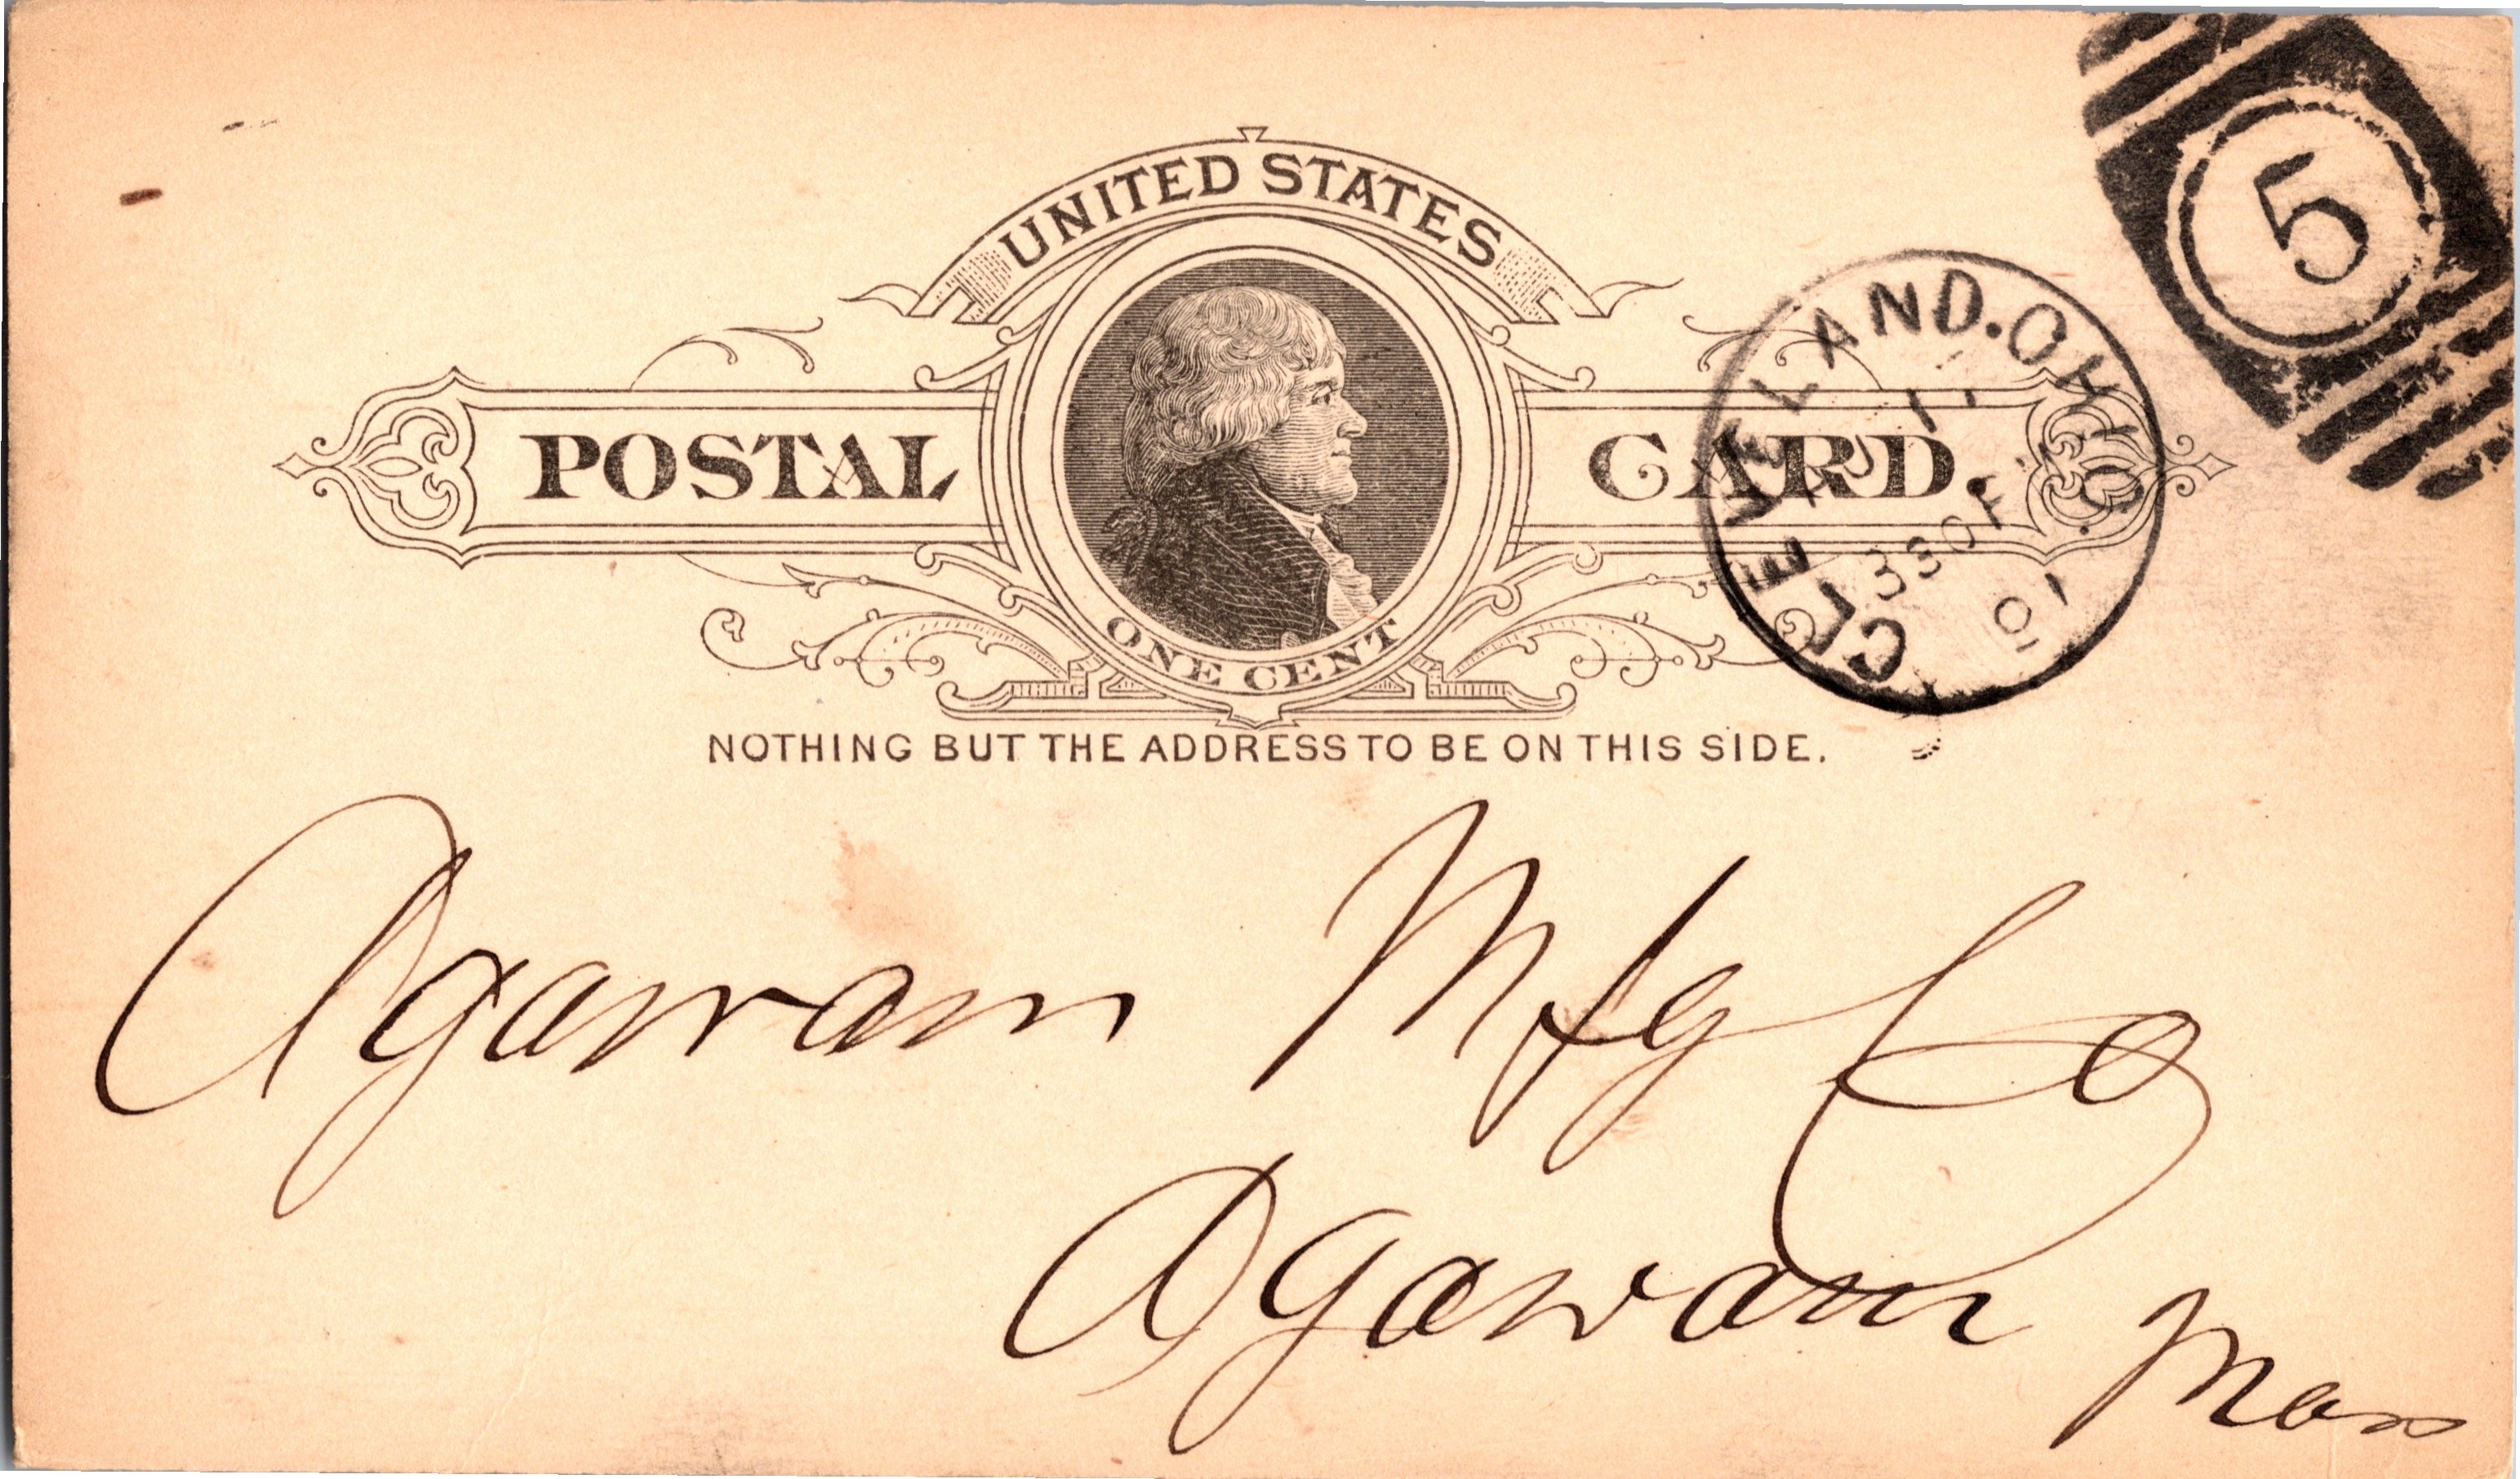 UNITED STATES
POSTAL CARD.
ONE CENT
NOTHING BUT THE ADDRESS TO BE ON THIS SIDE.
CLEVELAND. OHIO.
5
Agawam Mfg Co
Agawam Mass